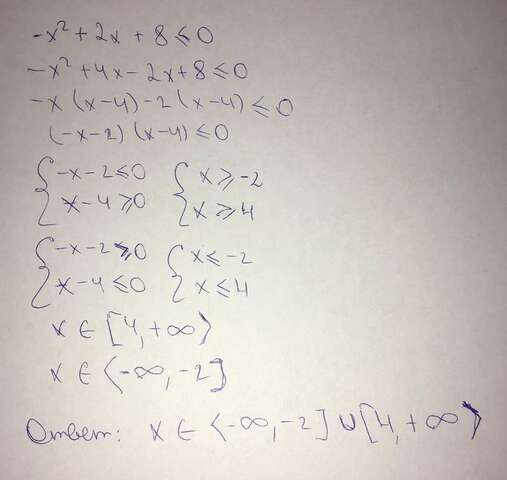 -x² + 2x + 8 ≤ 0
-x² + 4x - 2x + 8 ≤ 0
-x (x-4) - 2 (x-4) ≤ 0
(-x-2) (x-4) ≤ 0
{ -x - 2 ≤ 0 { x ≥ -2
{ x - 4 ≥ 0 { x ≥ 4
{ -x - 2 ≥ 0 { x ≤ -2
{ x - 4 ≤ 0 { x ≤ 4
x ∈ [4, +∞)
x ∈ (-∞, -2]
Ответ: x ∈ (-∞, -2] ∪ [4, +∞)